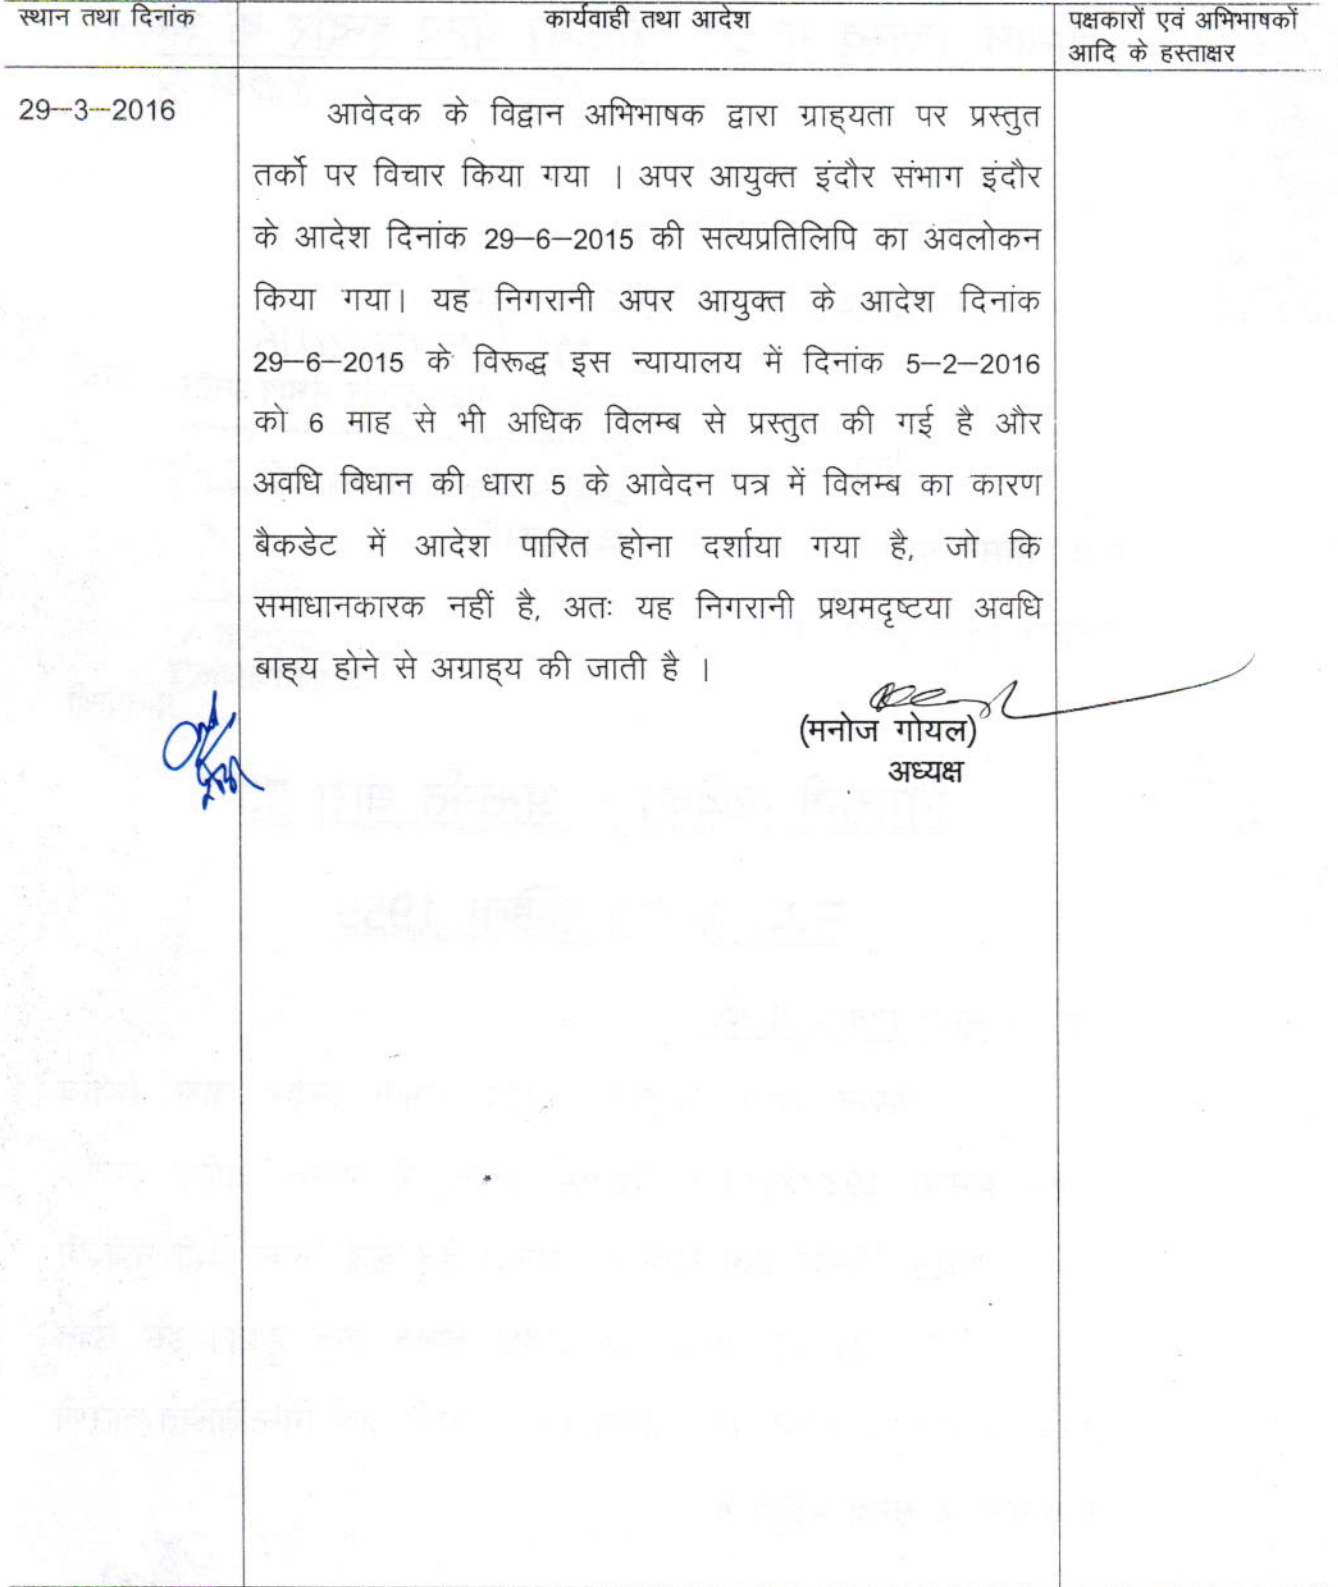 स्थान तथा दिनांक
कार्यवाही तथा आदेश
पक्षकारों एवं अभिभाषकों
आदि के हस्ताक्षर
29--3--2016
आवेदक के विद्वान अभिभाषक द्वारा ग्राह्यता पर प्रस्तुत
तर्को पर विचार किया गया । अपर आयुक्त इंदौर संभाग इंदौर
के आदेश दिनांक 29–6–2015 की सत्यप्रतिलिपि का अवलोकन
किया गया। यह निगरानी अपर आयुक्त के आदेश दिनांक
29–6–2015 के विरूद्ध इस न्यायालय में दिनांक 5–2–2016
को 6 माह से भी अधिक विलम्ब से प्रस्तुत की गई है और
अवधि विधान की धारा 5 के आवेदन पत्र में विलम्ब का कारण
बैकडेट में आदेश पारित होना दर्शाया गया है, जो कि
समाधानकारक नहीं है, अतः यह निगरानी प्रथमदृष्टया अवधि
बाह्य होने से अग्राह्य की जाती है ।
(मनोज गोयल)
अध्यक्ष